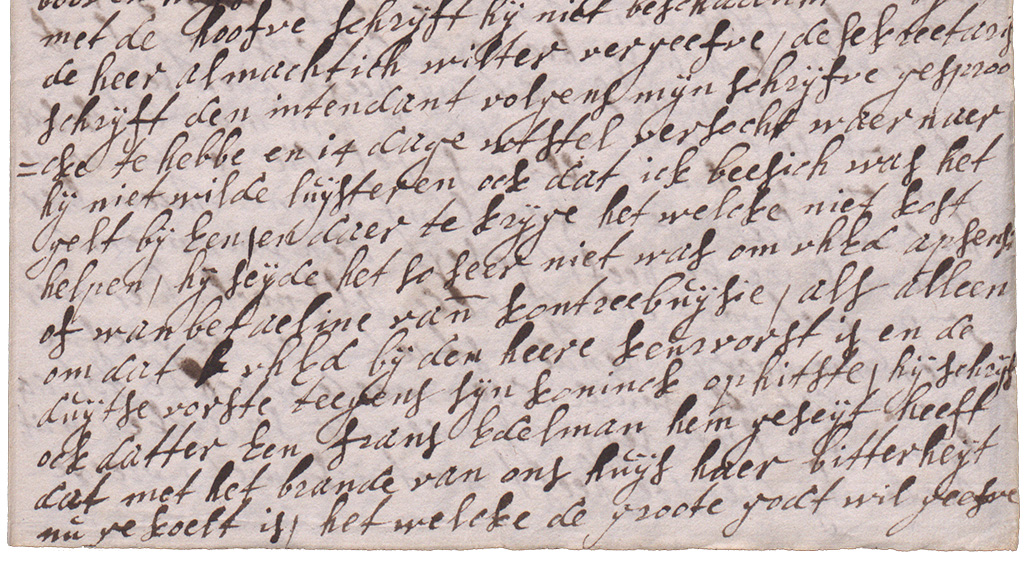 met de hoofve schrijft hij niet
de heer almachtich wilter vergeefve, de sekreetaris
schrijft den intendant volgens mijn schrijfve gesproo
=cke te hebbe en 14 dage wtstel versocht waer naer
hij niet wilde luijsteren ock dat ick beesich was het
gelt bij Een en daer te krijge het welcke niet kost
helpen, hij seijde het so seer niet was om vhEd apsensi
of wanbetaeline van kontreebuijsie, als alleen
om dat vhEd bij den heere keurvorst is en de
duijtse vorste teegens sijn koninck ophitste, hij schrijft
ock datter Een frans Edelman hem geseijt heeft
dat met het brande van ons huijs haer bitterheijt
nu gekoelt is, het welcke de groote godt wil geefve